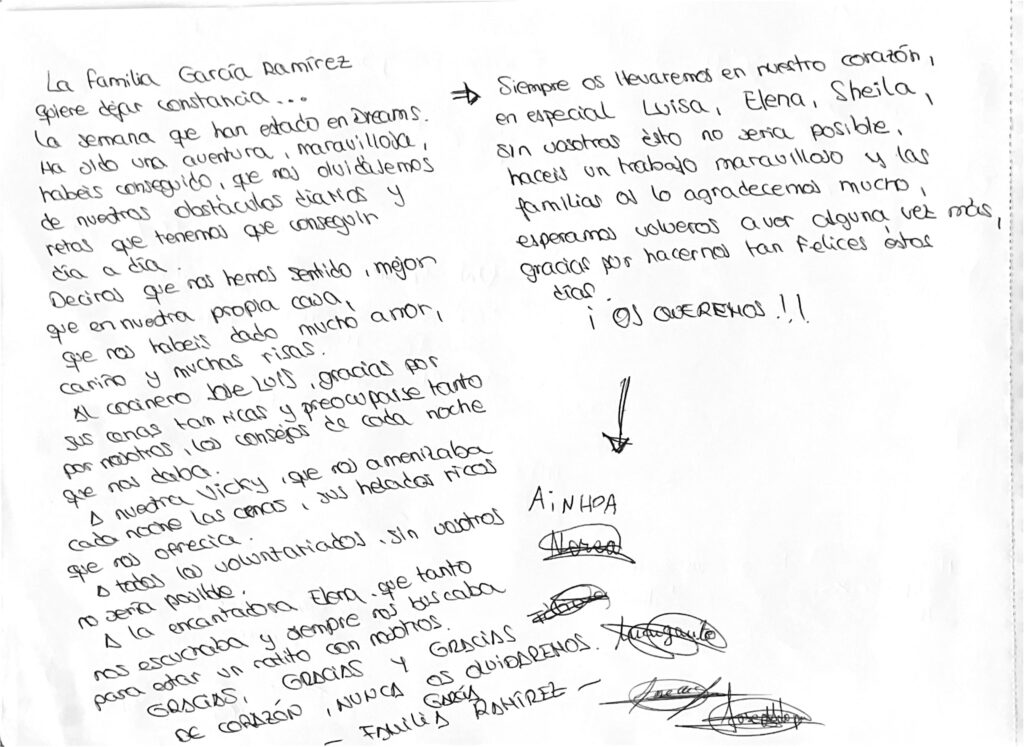 La familia García Ramírez
quiere dejar constancia...
La semana que han estado en Dreams.
Ha sido una aventura, maravillosa,
habeis conseguido, que nos olvidasemos
de nuestros obstáculos diarios y
retos que tenemos que conseguir
día a día.
Deciros que nos hemos sentido, mejor
que en nuestra propia casa,
que nos habeis dado mucho amor,
cariño y muchas risas.
Al cocinero Jose Luis, gracias por
sus cenas tan ricas y preocuparse tanto
por nosotros, los consejos de cada noche
que nos daba.
A nuestra Vicky, que nos amenizaba
cada noche las cenas, sus helados ricos
que nos ofrecia.
A todos los voluntariados, sin vosotros
no sería posible.
A la encantadora Elena, que tanto
nos escuchaba y siempre nos buscaba
para estar un ratito con nosotros.
GRACIAS, GRACIAS Y GRACIAS
DE CORAZÓN, NUNCA OS OLVIDAREMOS.
- FAMILIA GARCÍA RAMÍREZ -
⇒ Siempre os llevaremos en nuestro corazón,
en especial Luisa, Elena, Sheila,
sin vosotras ésto no sería posible,
haceis un trabajo maravilloso y las
familias os lo agradecemos mucho,
esperamos volveros a ver alguna vez más,
gracias por hacernos tan felices éstos
días.
¡OS QUEREMOS!!
AiNHOA
Nerea